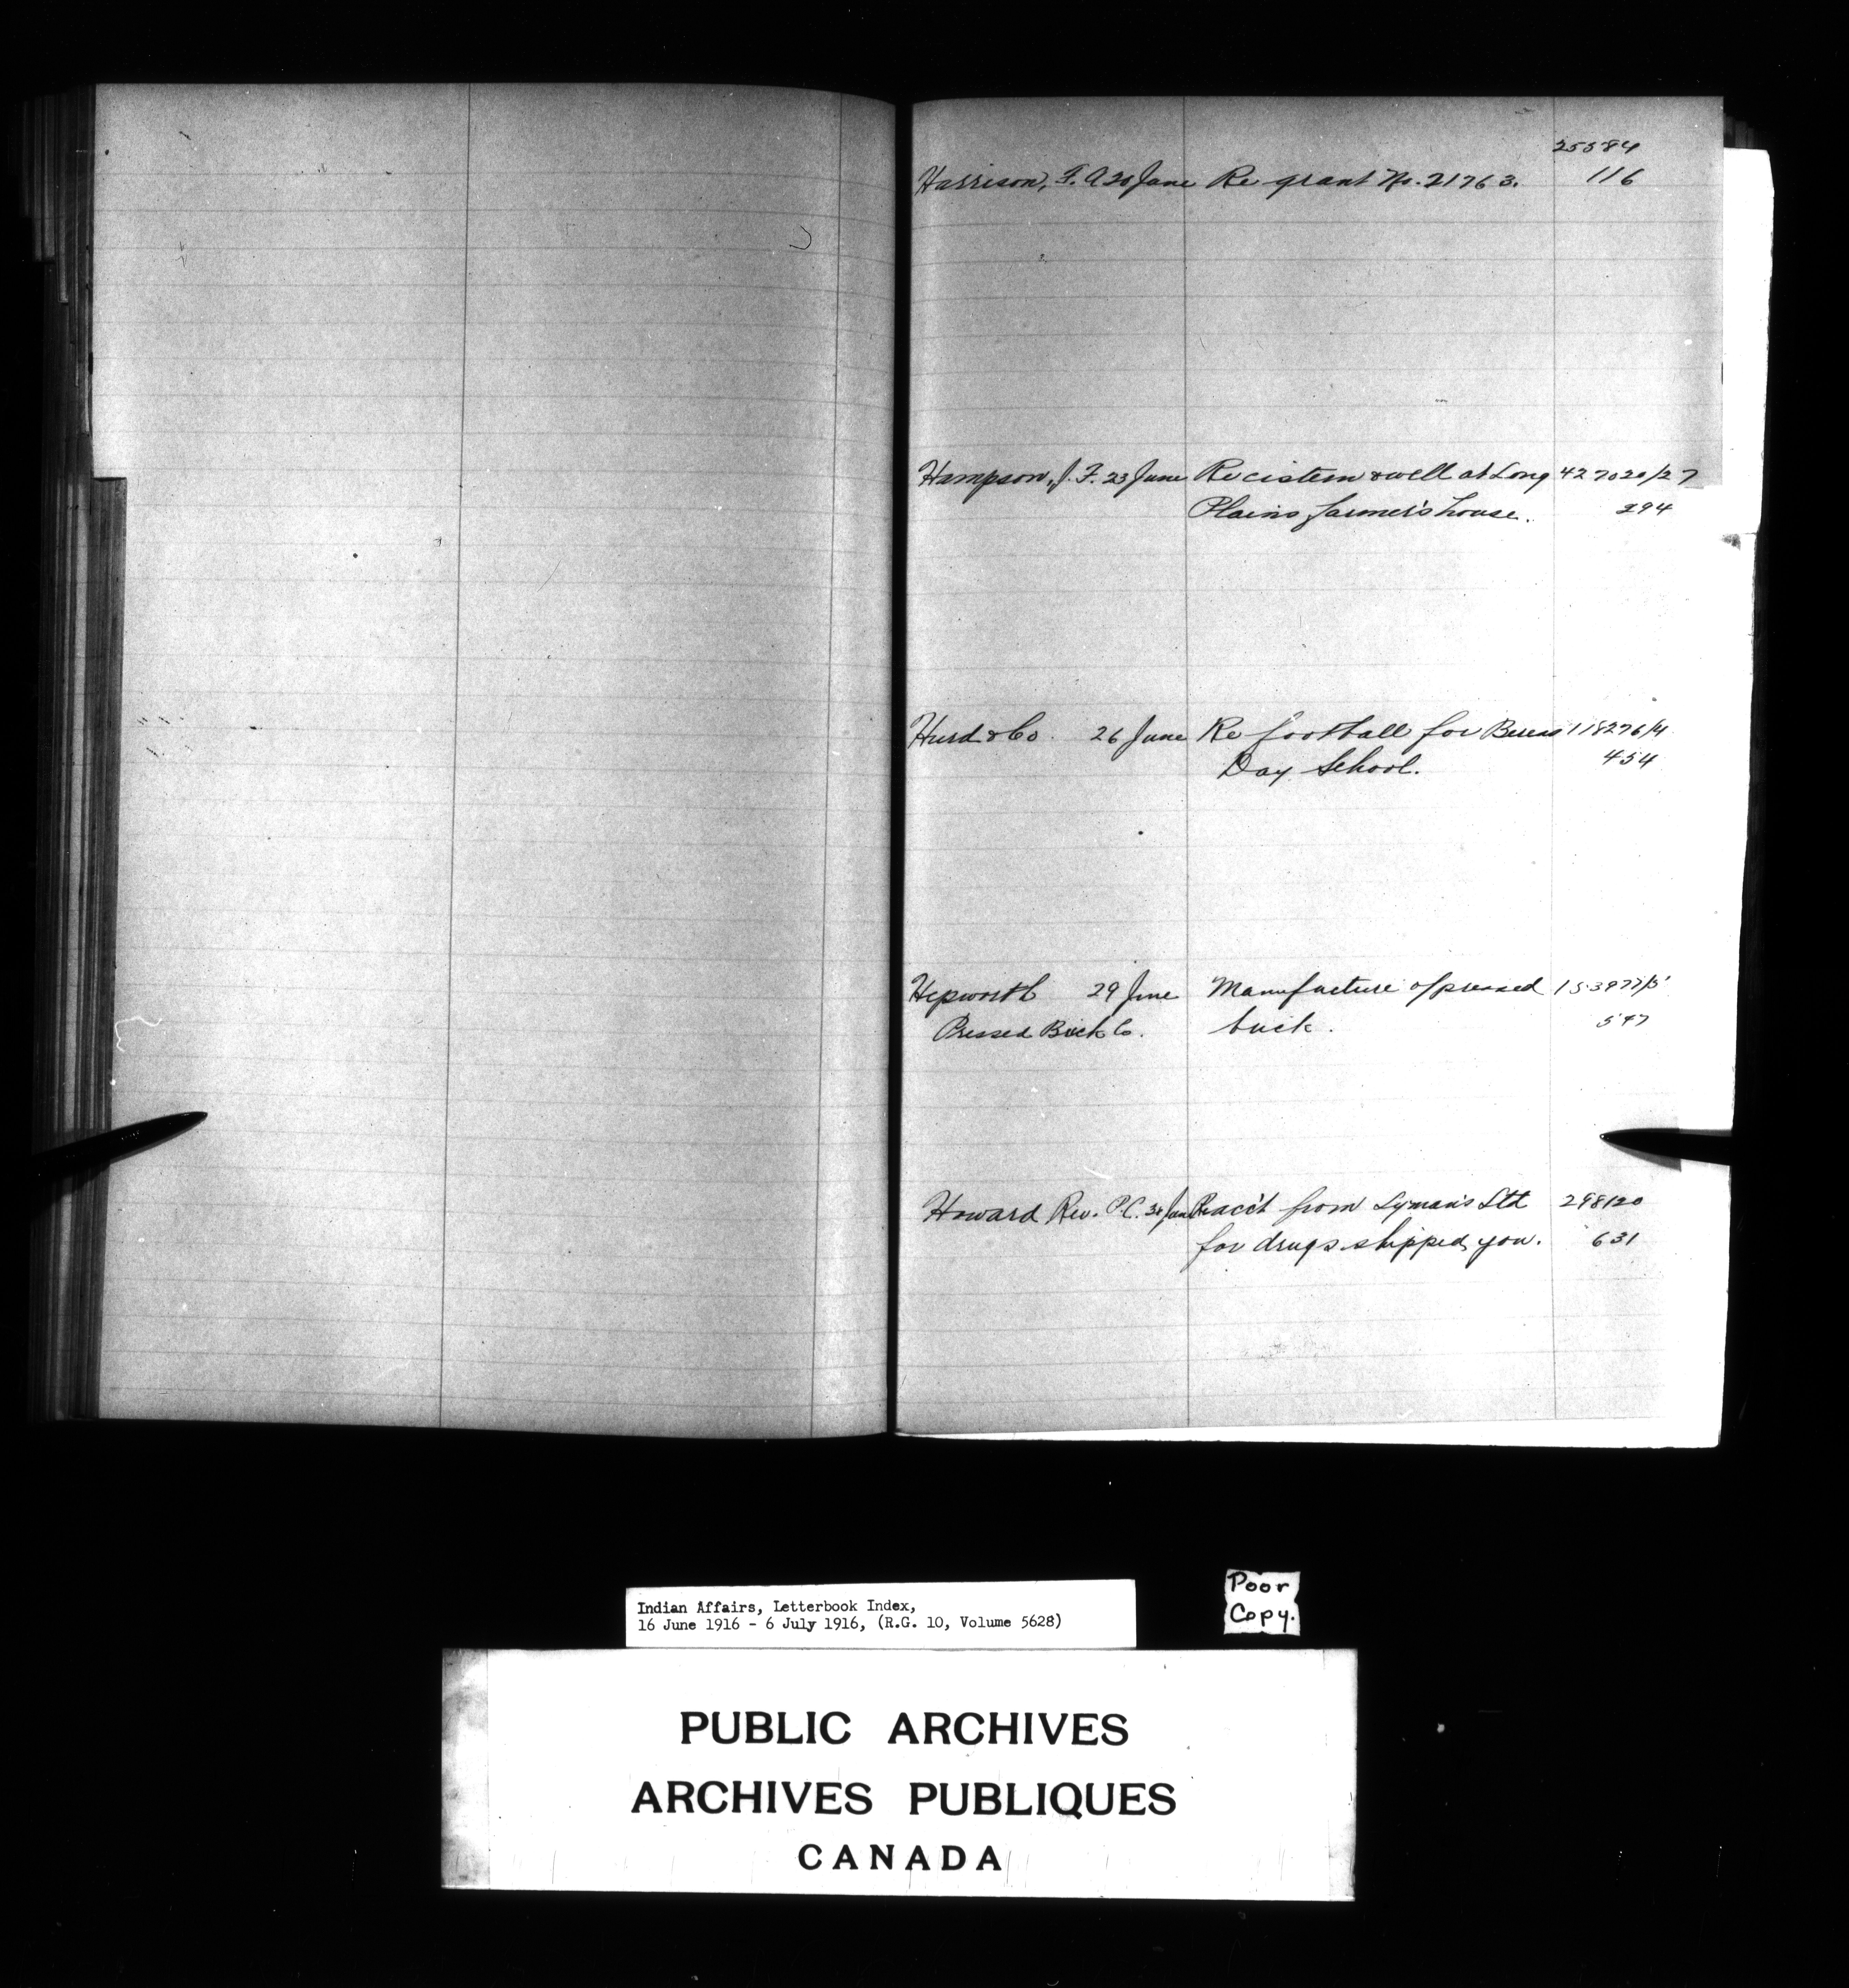 25584
Harrison, F. A 20 June Re grant No. 21763. 116
Hampson, J. F. 23 June Re cistern & well at Long 427020/27
Plains farmer's house. 294
Hurd & Co. 26 June Re football for Berens 118276/4
Day School. 454
Hepworth 29 June Manufacture of pressed 153977/5
Pressed Brick Co. brick. 547
Howard Rev. P.C. 30 June Re acc't from Lyman's Ltd 298120
for drugs shipped you. 631
Indian Affairs, Letterbook Index,
16 June 1916 - 6 July 1916, (R.G. 10, Volume 5628)
Poor
Copy.
PUBLIC ARCHIVES
ARCHIVES PUBLIQUES
CANADA